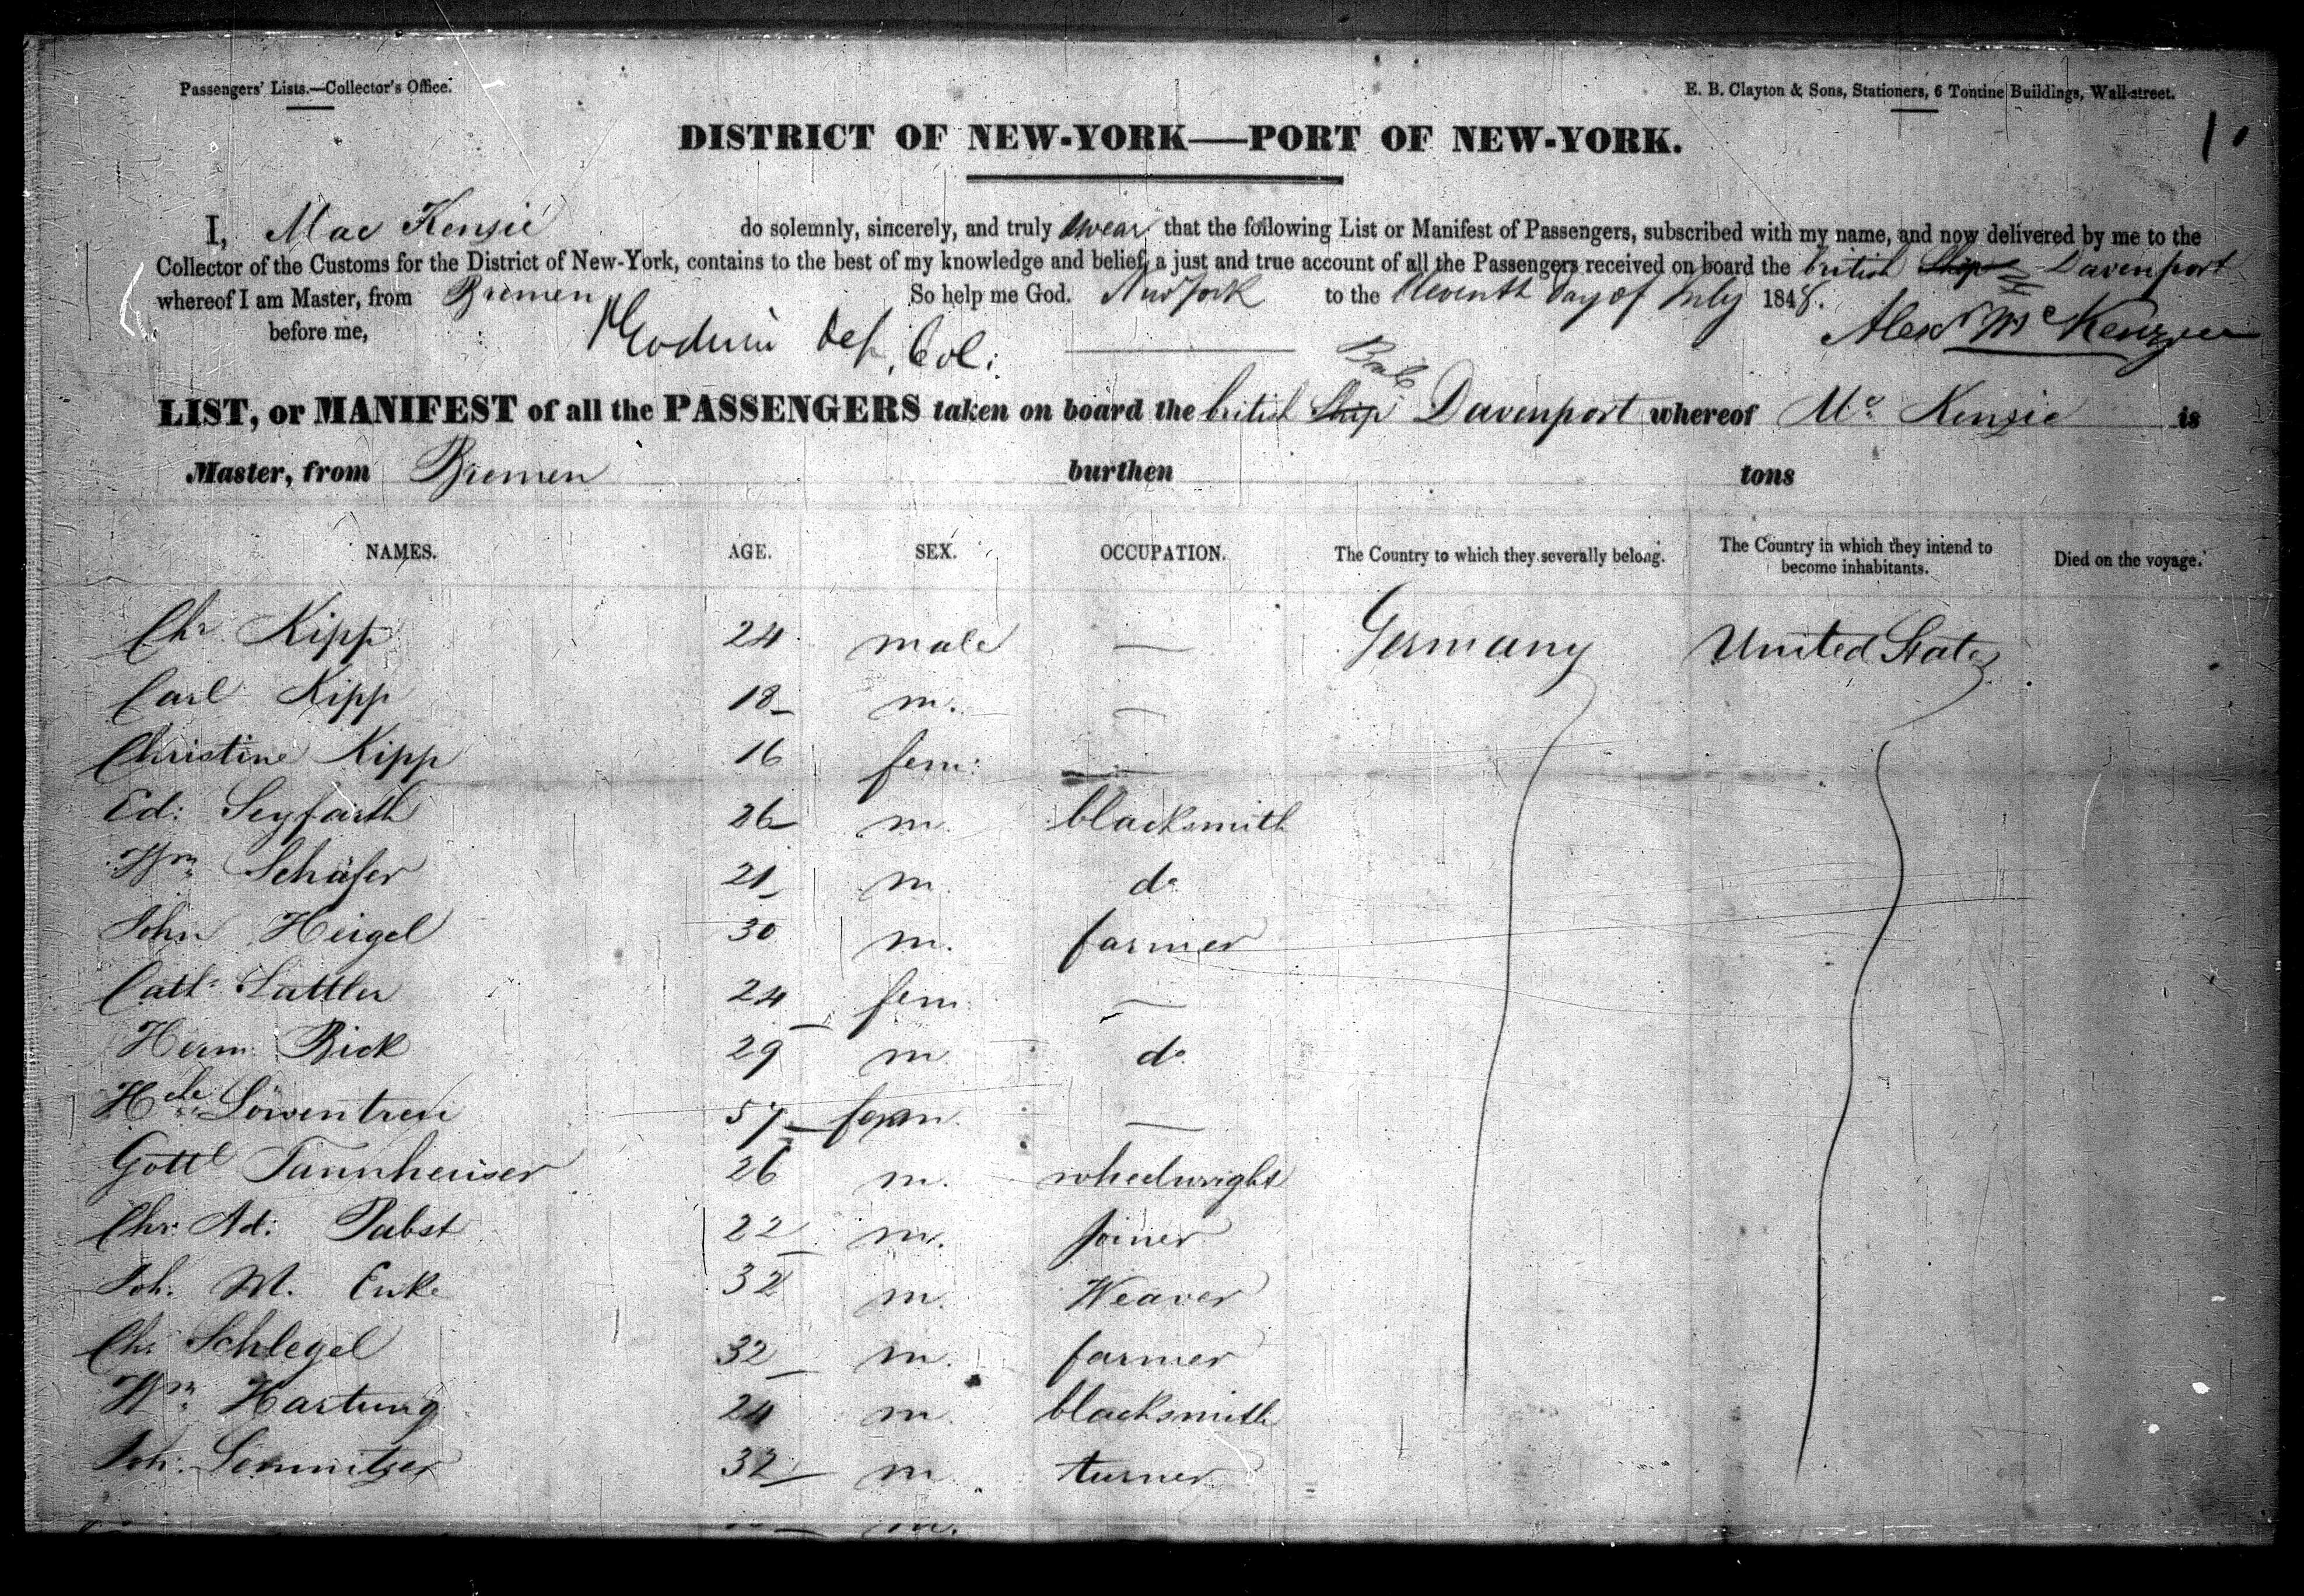 Passengers' Lists.—Collector's Office.
E. B. Clayton & Sons, Stationers, 6 Tontine Buildings, Wall-street.
1.
DISTRICT OF NEW-YORK—PORT OF NEW-YORK.
I, Mac Kensie do solemnly, sincerely, and truly swear that the following List or Manifest of Passengers, subscribed with my name, and now delivered by me to the
Collector of the Customs for the District of New-York, contains to the best of my knowledge and belief, a just and true account of all the Passengers received on board the british Ship Davenport
whereof I am Master, from Bremen So help me God. New York to the eleventh day of July 1848.
before me, Dep. Col: Alexr Mc Kenzie
Bark
LIST, or MANIFEST of all the PASSENGERS taken on board the british Ship Davenport whereof Mc. Kensie is
Master, from Bremen burthen tons
NAMES. AGE. SEX. OCCUPATION. The Country to which they severally belong. The Country in which they intend to become inhabitants. Died on the voyage.
Chr. Kipp 24 male — Germany United States
Carl Kipp 18 m. —
Christine Kipp 16 fem: —
Ed: Seyfarth 26 m. blacksmith
Wm. Schäfer 21 m. do
John Heigel 30 m. farmer
Cath. Sattler 24 fem. —
Herm. Bick 29 m do.
Hele Löwentrei 57 fem. —
Gottl Tannheuser 26 m. wheelwright
Chr. Ad. Pabst 22 m. joiner
Joh. M. Enke 32 m. Weaver
Chr. Schlegel 32 m. farmer
Wm. Hartung 24 m. blacksmith
Joh. Sommitzer 32 m turner
m.